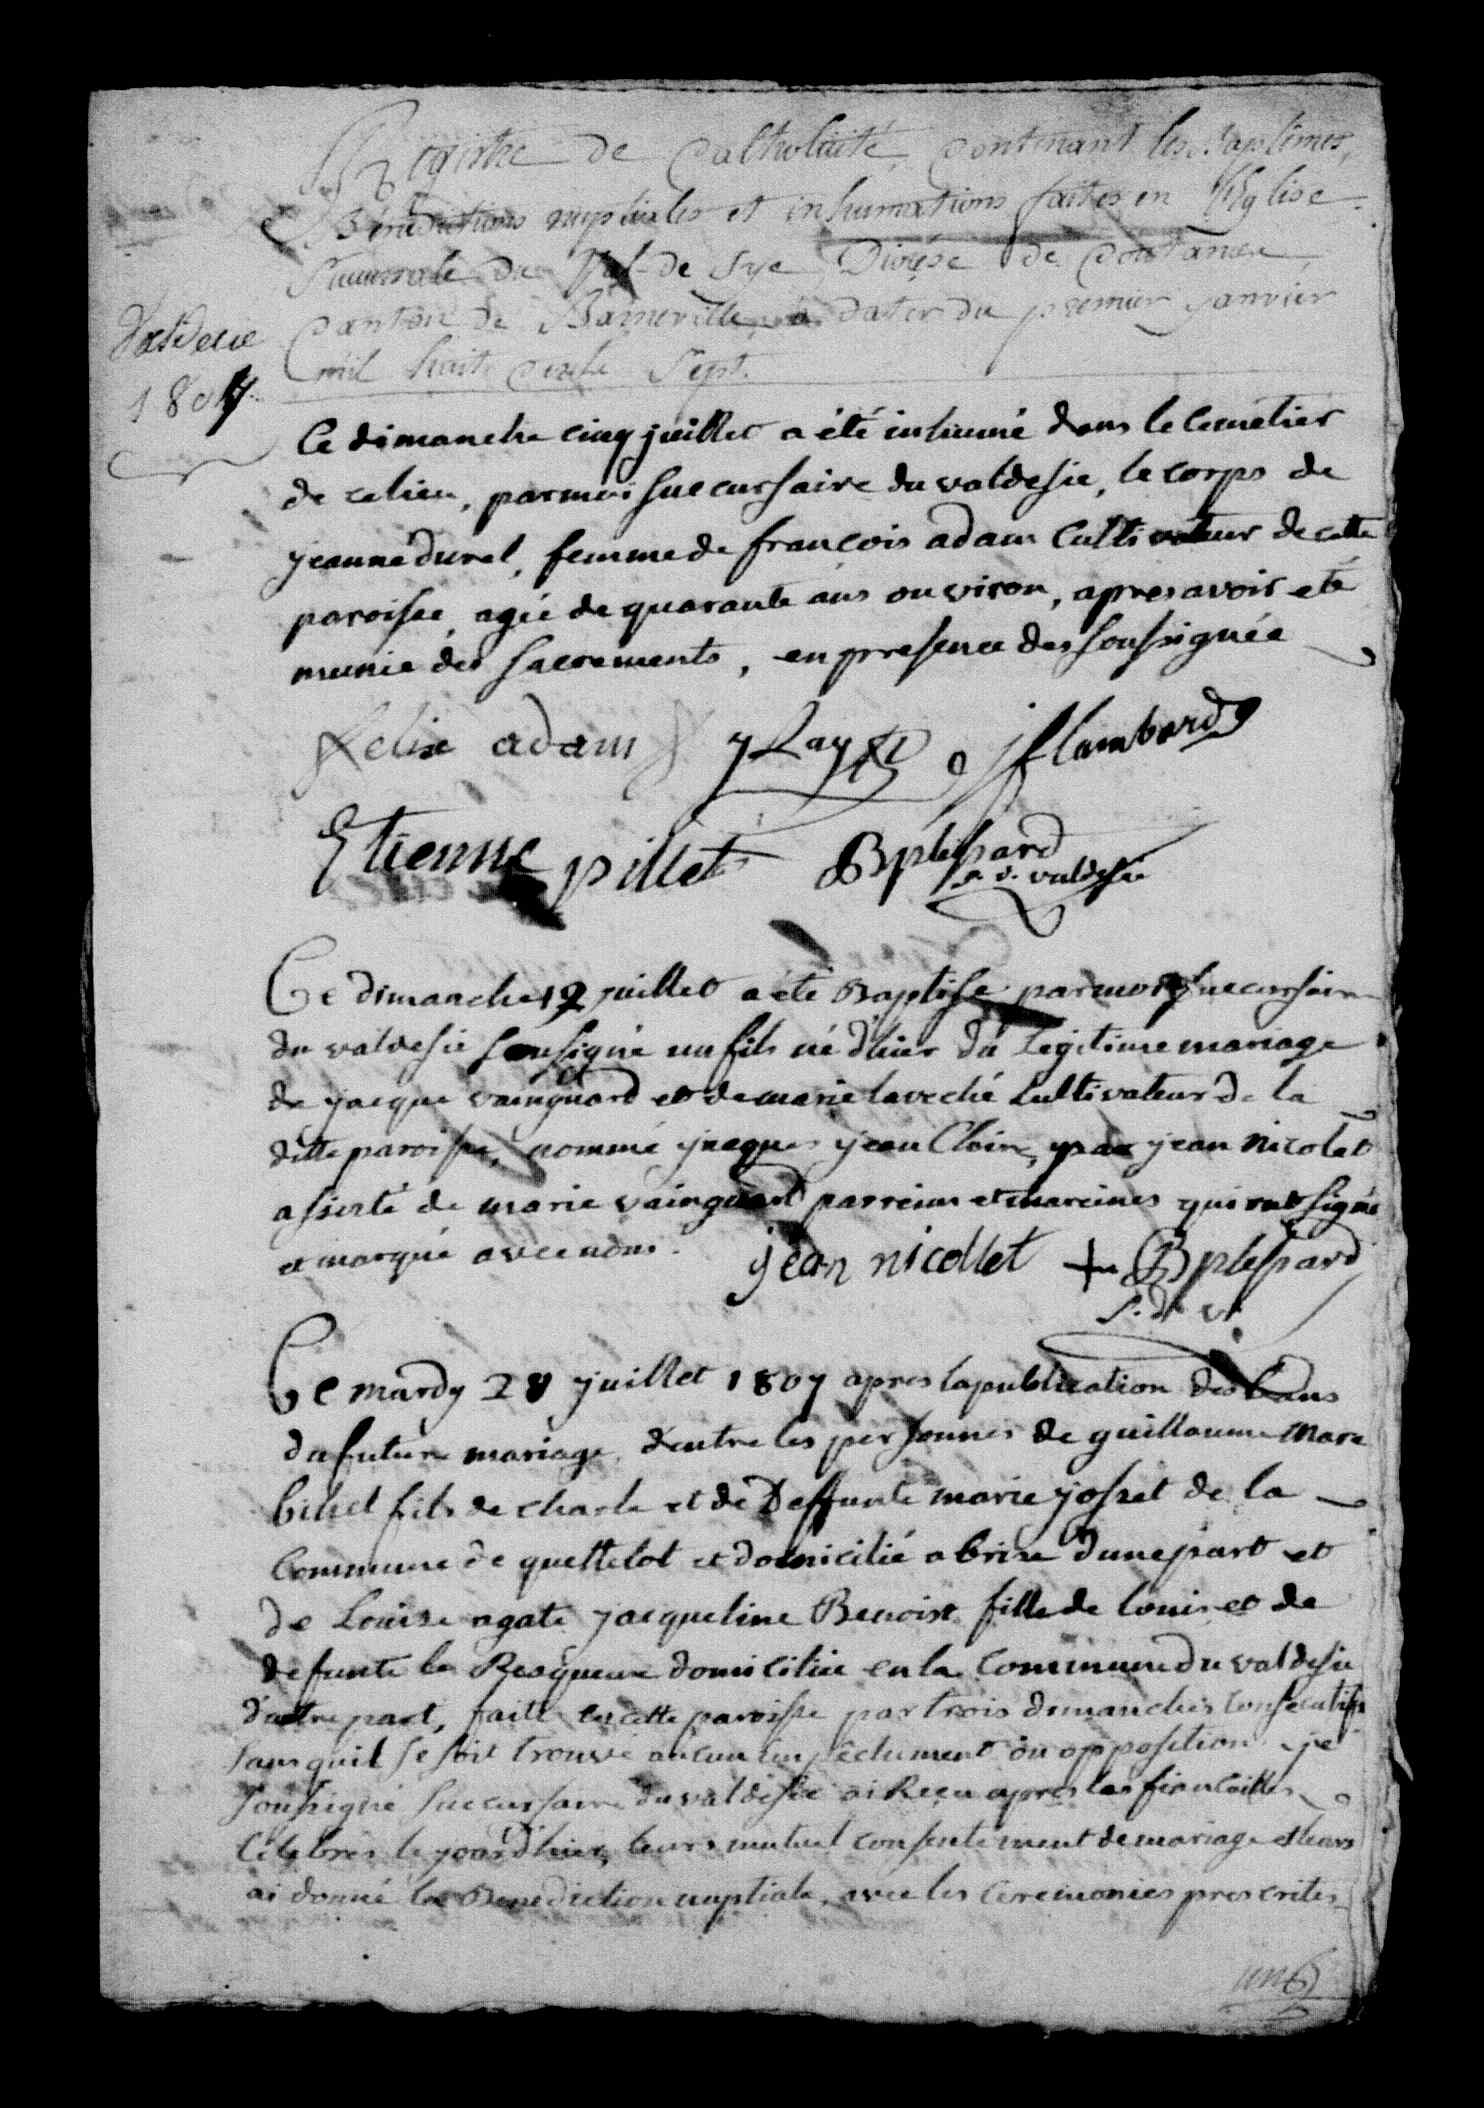 Registre de Catholicité, Contenant les Baptêmes,
Bénédictions nuptiales et inhumations faites en l'Eglise
Succursale du Val-de-Sye Diocèse de Coutance
Canton de Barneville, à dater du premier Janvier
mil huit cents Sept.
Valdecie
1807
Ce dimanche cinq juillet a été inhumé dans le Cemetier
de ce lieu, par moi succursaire du valdesie, le corps de
jeanne durel, femme de françois adam Cultivateur de cette
paroisse, agée de quarante ans ou viron, apres avoir eté
munie des sacrements, en presence des soussignée
felix adam
flambard
Etienne pillet Bplessard
s. d. valdesie
Ce dimanche 12 juillet a été Baptisé par moy succursaire
du valdesie soussigné un fils né d'hier du Legitime mariage
de jacque vainguard et de marie laveché Cultivateur de la
ditte paroisse, nommé jacques jean, par jean nicolet
assisté de marie vainguard parreins et mareines qui ont signé
et marqué avec nous.
jean nicollet + Bplessard
s. d. v.
Ce mardy 28 juillet 1807 apres la publication des bans
du future mariage, d'entre les personnes de guillaume Marc
bihel fils de charle et de Deffunte marie josset de la
Commune de quettetot et domicilié a brix d'une part et
de Louise agate jacqueline Benoist fille de louis et de
defunte domiciliée en la Commune du valdesie
d'autre part, faitte en cette paroisse par trois dimanches consecutifs
sans quil se soit trouvé aucun empêchement ou opposition, je
soussigné succursaire du valdesie ai Reçu apres les fiancailles
Celebres le jour d'hier, leurs mutuel consentement de mariage et leurs
ai donné la Benediction nuptiale, avec les ceremonies prescrites
un